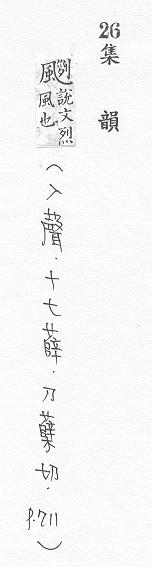 26 集韻
颲 說文烈
風也
(入聲.十七薛.力蘖切.p.711)